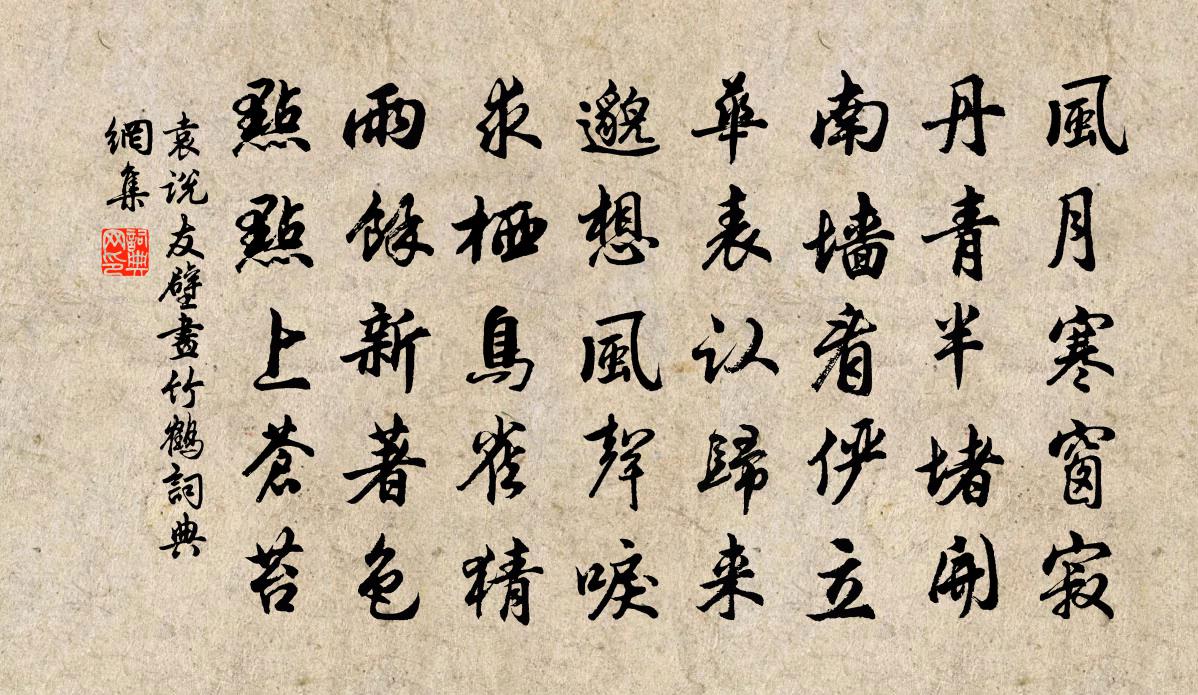 風月寒窗寂
丹青半堵開
南墙看俨立
華表认歸来
邈想風聲唳
求栖鳥雀猜
雨餘新著色
點點上蒼苔
袁说友壁畫竹鶴詞典
網集
詞典
网印